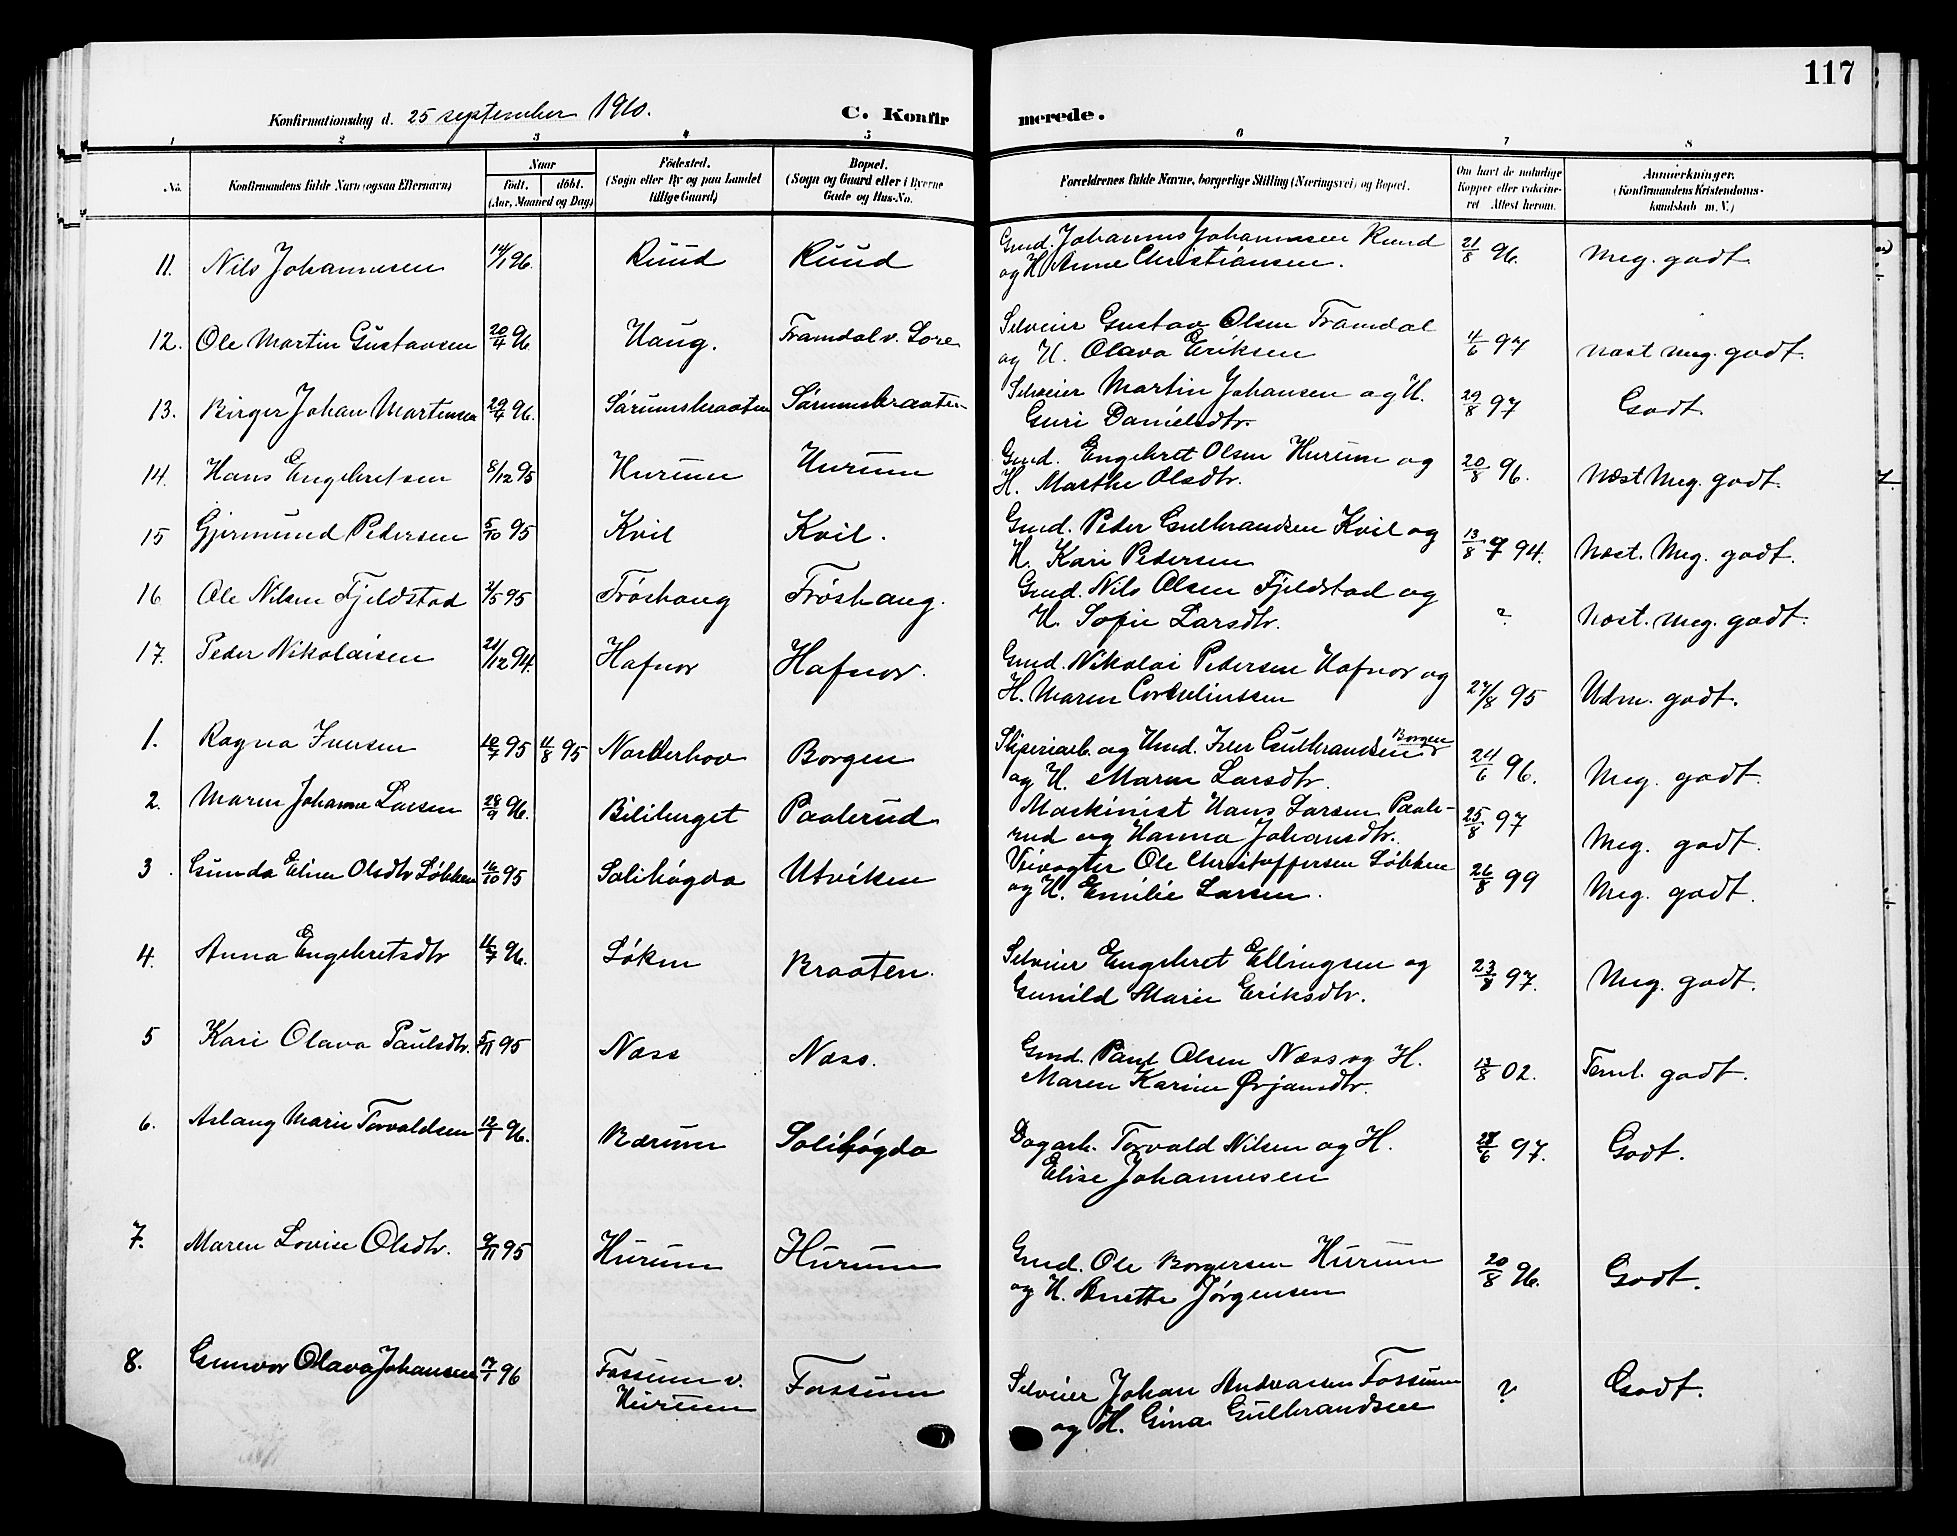 117
Konfirmationsdag d. 25 september 1910. C. Konfir merede.
1 2 3 4 5 6 7 8
No. Konfirmandens fulde Navn (ogsaa Efternavn) Naar født. døbt. (Aar, Maaned og Dag) Fødested. (Sogn eller By og paa Landet tillige Gaard) Bopæl. (Sogn og Gaard eller i Byerne Gade og Hus-No. Forældrenes fulde Navne, borgerlige Stilling (Næringsvei) og Bopæl. Om havt de naturlige Kopper eller vaccineret Attest herom. Anmerkninger. (Konfirmandens Kristendomskundskab m. V.)
11. Nils Johannesen 14/1 96. Ruud Ruud Gmd. Johannes Johannesen Ruud 21/8 96. Meg. godt
og H. Anne Christiansen.
12. Ole Martin Gustavsen 20/4 96 Haug. Framdal v. Sore Selveier Gustav Olsen Framdal 4/6 97 næst meg. godt.
og H. Olava Eriksen
13. Birger Johan Martinsen 29/4 96. Sørumsbraaten Sørumsbraaten Selveier Martin Johansen og H. 29/8 97 Godt.
Guri Danielsdtr.
14. Hans Engebretsen 8/12 95 Hurum Hurum Gmd. Engebret Olsen Hurum og 20/8 96. Næst Meg. godt.
H. Marthe Olsdtr.
15 Gjermund Pedersen 5/10 95 Kvil Kvil. Gmd. Peder Gulbrandsen Kvil og 13/8 94. Næst. Meg. godt.
H. Kari Pedersen
16 Ole Nilsen Fjeldstad 2/5 95 Frøshaug Frøshaug. Gmd. Nils Olsen Fjeldstad og ? Næst. meg. godt.
H. Sofie Larsdtr.
17. Peder Nikolaisen 21/12 94. Hafnor Hafnor. Gmd. Nikolai Pedersen Hafnor og 27/8 95 Udm. godt.
H. Maren Corneliussen
1. Ragna Iversen 10/7 95 11/8 95 Norderhov Borgen Sliperiarb. og Hmd. Iver Gulbrandsen Borgen 24/6 96. Meg. godt.
og H. Maren Larsdtr.
2. Maren Johanne Larsen 28/9 96. Biliberget Paalerud Maskinist Hans Larsen Paale- 25/8 97 Meg. godt.
rud og Hanna Johansdtr.
3. Gunda Eline Olsdtr Løkken 16/10 95 Solihøgda Utviken Veivogter Ole Christoffersen Løkken 26/8 99 Meg. godt.
og H. Emilie Larsen.
4. Anna Engebretsdtr 16/7 96. Løken Braaten. Selveier Engebret Ellingsen og 23/8 97. Meg. godt.
Gunild Marie Eriksdtr.
5 Kari Olava Paulsdtr. 5/11 95 Næss Næss. Gmd. Paul Olsen Næss og H. 13/8 02. Teml. godt.
Maren Karine Ørjansdtr.
6. Aslaug Marie Torvaldsen 12/1 96. Bærum Solihøgda Dagarb. Torvald Nilsen og H. 28/6 97. Godt.
Elise Johannesen
7. Maren Lovise Olsdtr. 9/11 95 Hurum Hurum Gmd. Ole Borgersen Hurum 20/8 96. Godt.
og H. Anette Jørgensen
8. Gunvor Olava Johansen 17/1 96 Fossum v. Fossum Selveier Johan Andvarsen Fossum ? Godt.
Hurum og H. Gina Gulbrandsen